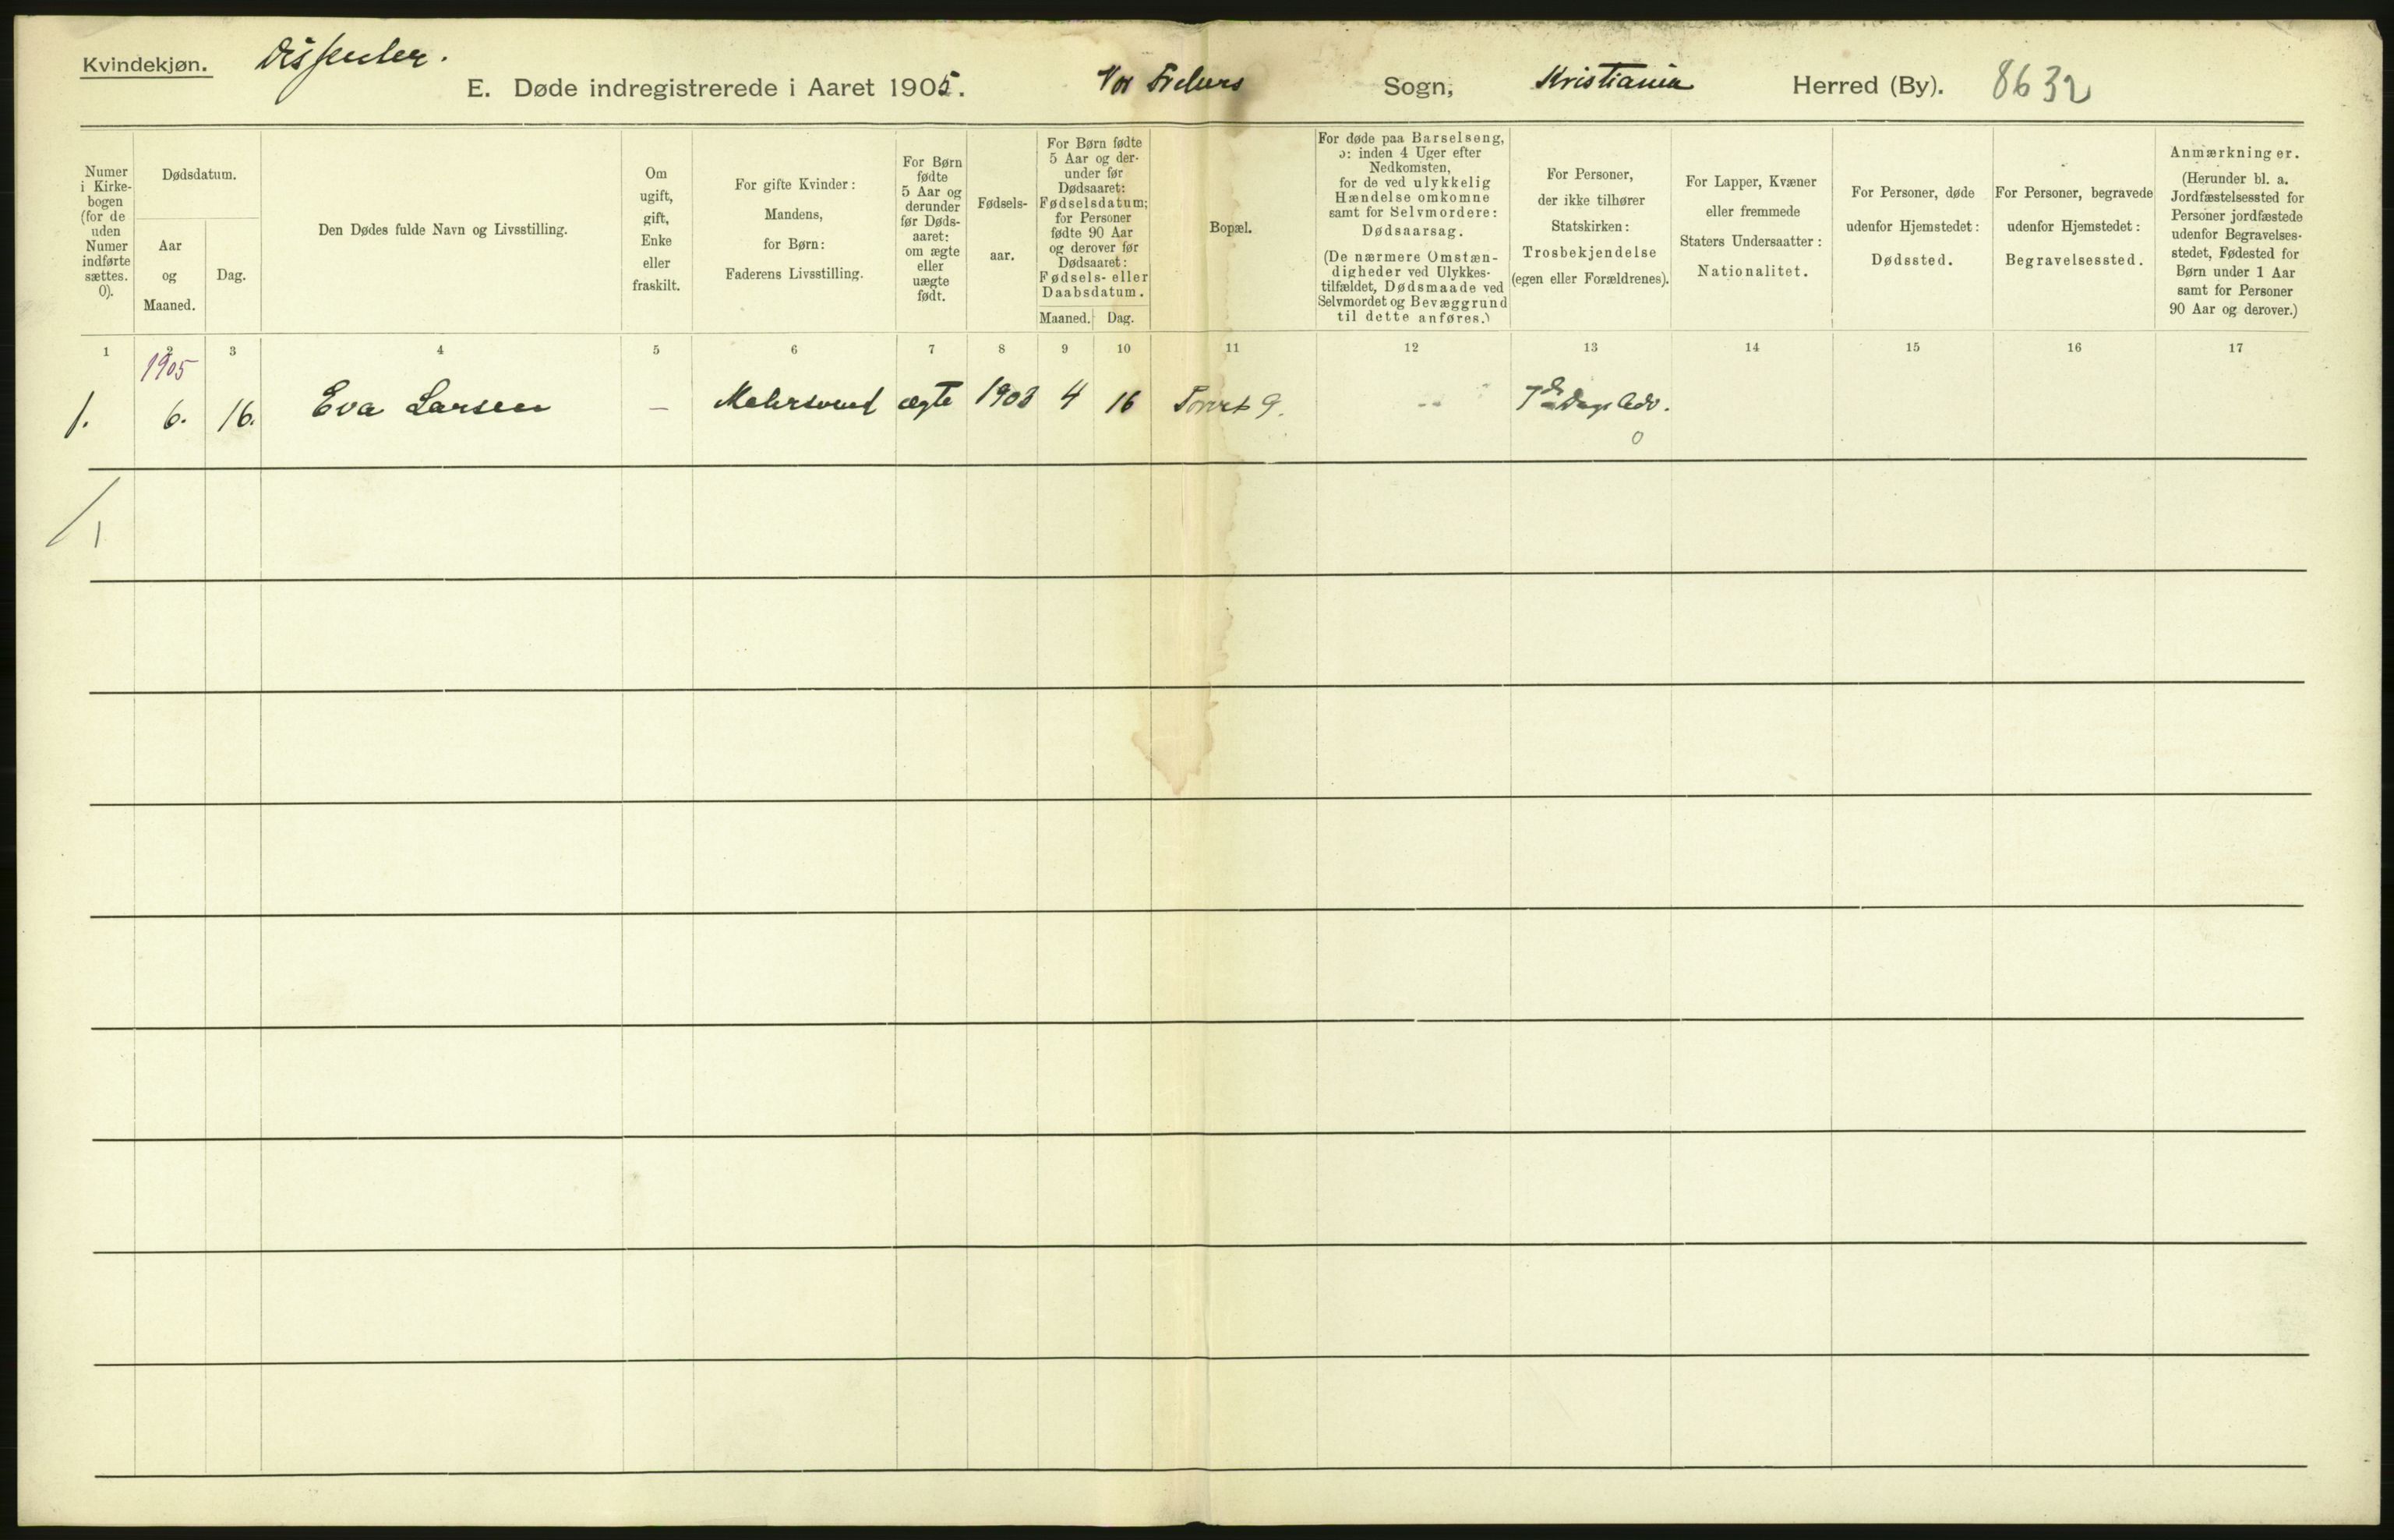 Kvindekjøn. Dissenter.
E. Døde indregistrerede i Aaret 1905. Vor Frelsers Sogn, Kristiania Herred (By). 8632
Numer
i Kirke-
bogen
(for de
uden
Numer
indførte
sættes.
0).
Dødsdatum.
Aar
og
Maaned.
Dag.
Den Dødes fulde Navn og Livsstilling.
Om
ugift,
gift,
Enke
eller
fraskilt.
For gifte Kvinder:
Mandens,
for Børn:
Faderens Livsstilling.
For Børn
fødte
5 Aar og
derunder
før Døds-
aaret:
om ægte
eller
uægte
født.
Fødsels-
aar.
For Børn fødte
5 Aar og der-
under før
Dødsaaret:
Fødselsdatum;
for Personer
fødte 90 Aar
og derover før
Dødsaaret:
Fødsels- eller
Daabsdatum.
Maaned. Dag.
Bopæl.
For døde paa Barselseng,
ɔ: inden 4 Uger efter
Nedkomsten,
for de ved ulykkelig
Hændelse omkomne
samt for Selvmordere:
Dødsaarsag.
(De nærmere Omstæn-
digheder ved Ulykkes-
tilfældet, Dødsmaade ved
Selvmordet og Bevæggrund
til dette anføres.)
For Personer,
der ikke tilhører
Statskirken:
Trosbekjendelse
(egen eller Forældrenes).
For Lapper, Kvæner
eller fremmede
Staters Undersaatter:
Nationalitet.
For Personer, døde
udenfor Hjemstedet:
Dødssted.
For Personer, begravede
udenfor Hjemstedet:
Begravelsessted.
Anmærkninger.
(Herunder bl. a.
Jordfæstelsessted for
Personer jordfæstede
udenfor Begravelses-
stedet, Fødested for
Børn under 1 Aar
samt for Personer
90 Aar og derover.)
1 2 3 4 5 6 7 8 9 10 11 12 13 14 15 16 17
1905
1. 6. 16. Eva Larsen — Malersvend ægte 1903 4 16 Torvet 9. -- 7de Dags Adv.
0
/1